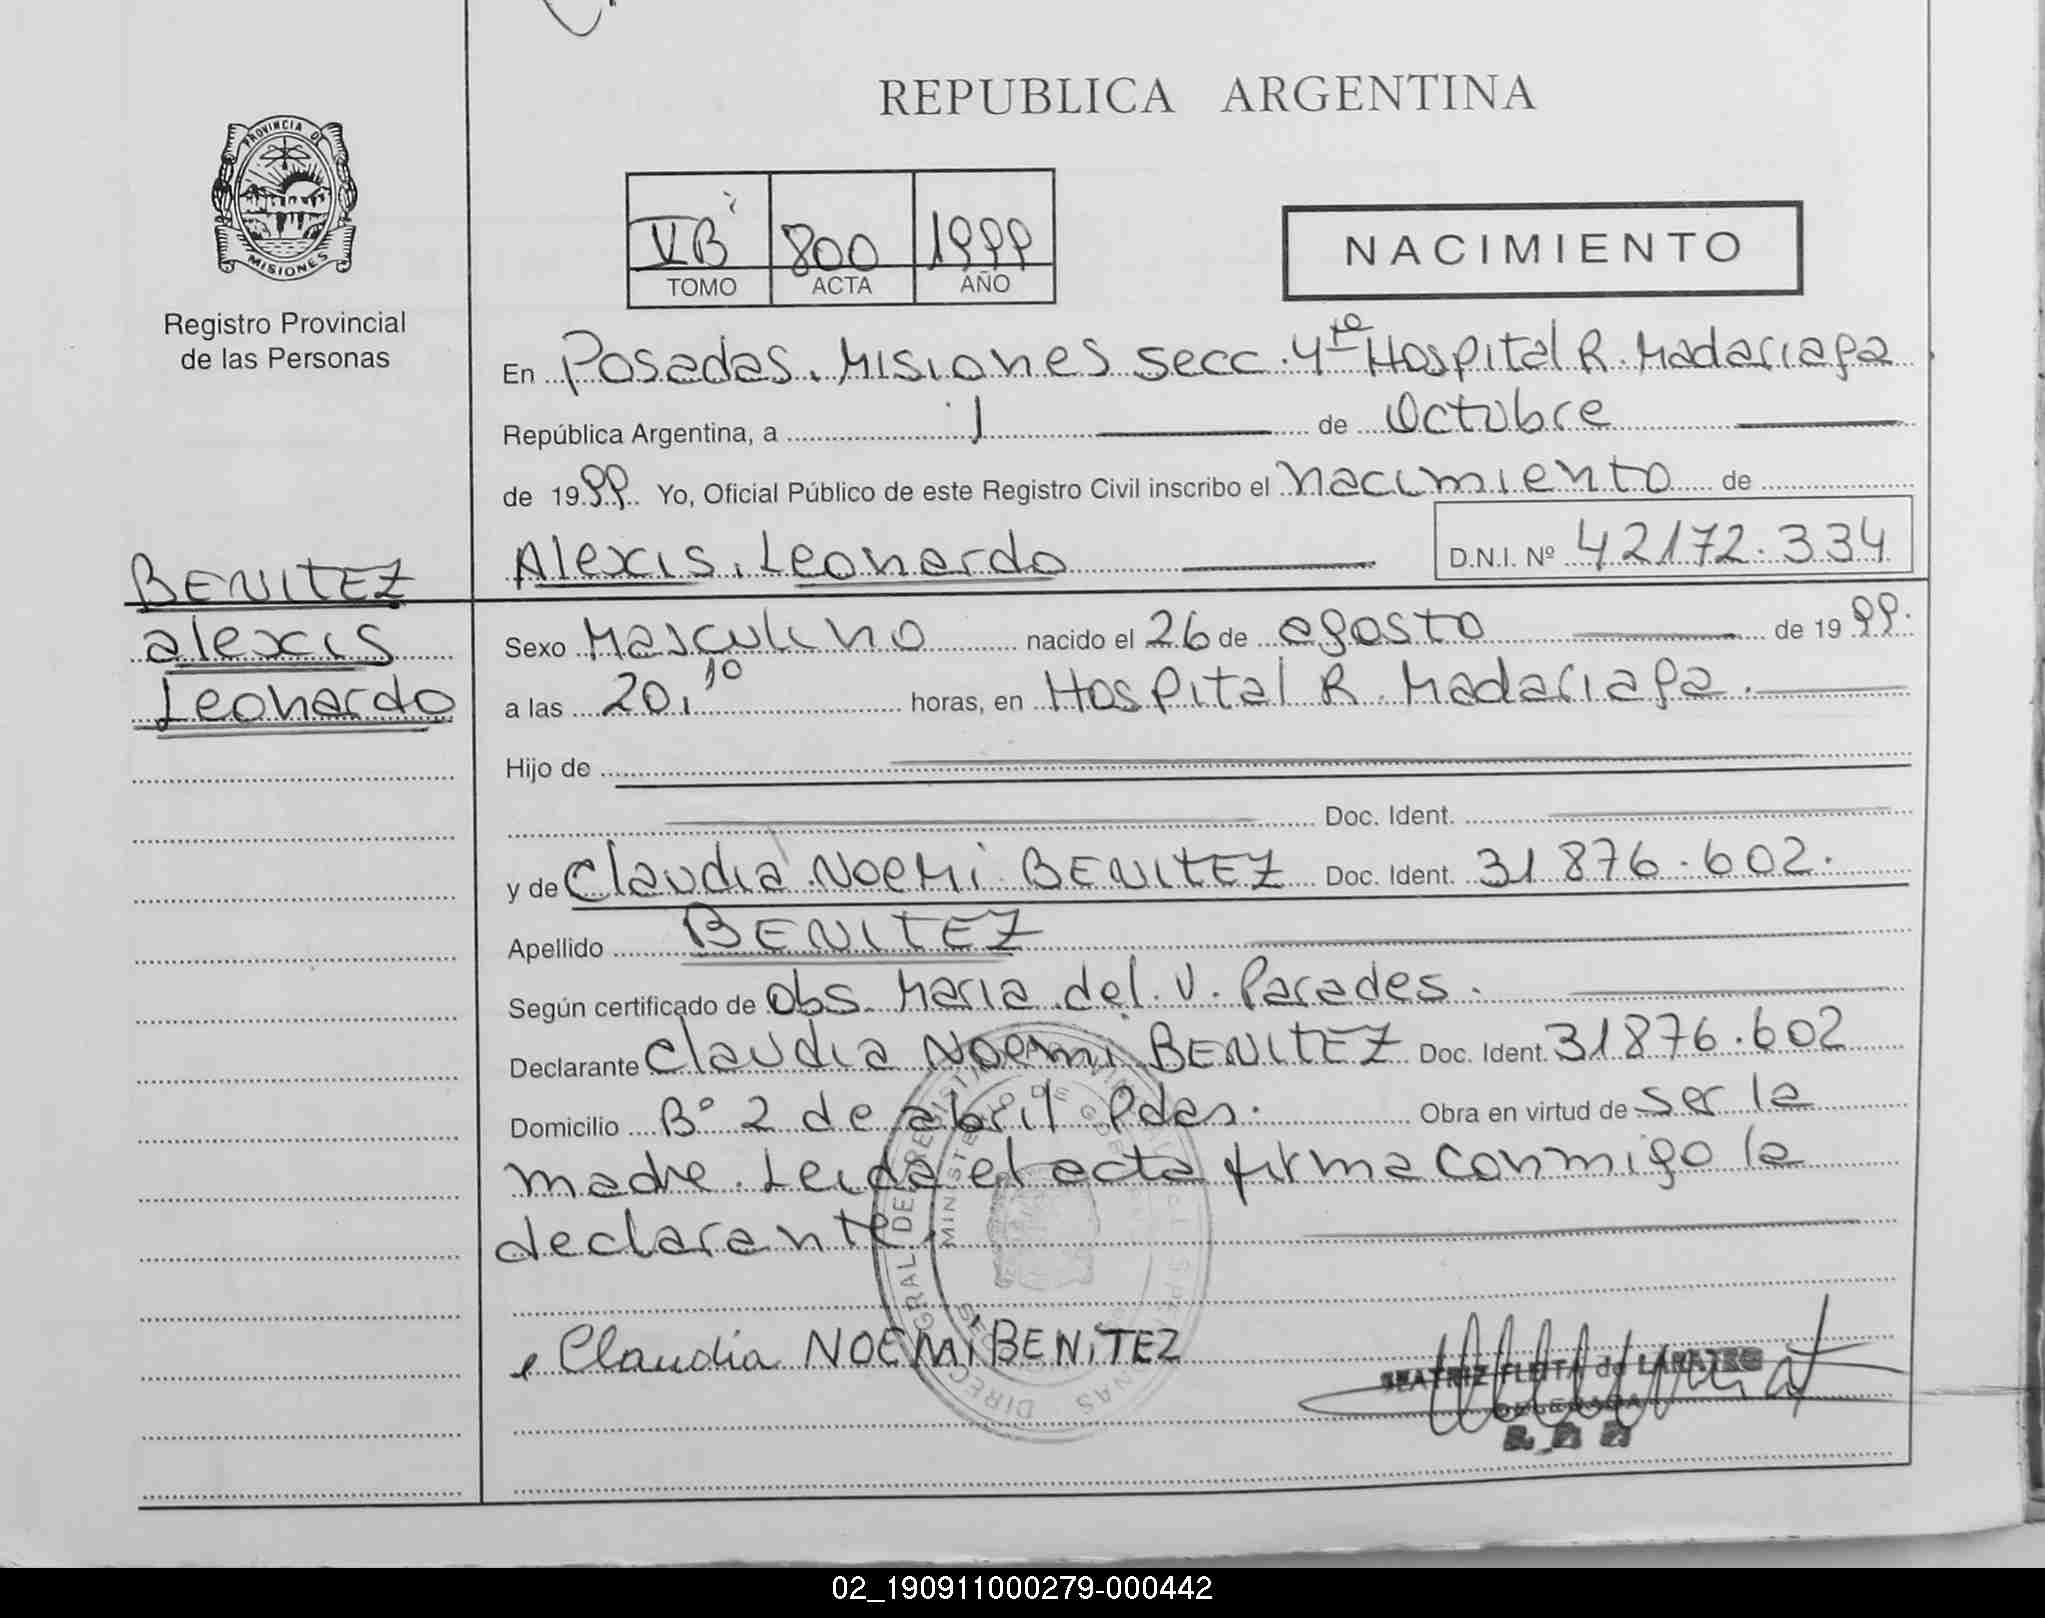 REPUBLICA ARGENTINA
PROVINCIA DE
MISIONES
Registro Provincial
de las Personas
VB 800 1999
TOMO ACTA AÑO
NACIMIENTO
En Posadas. Misiones secc. 4ta Hospital R. Madariaga
República Argentina, a 1 de Octubre
de 1999 Yo, Oficial Público de este Registro Civil inscribo el nacimiento de
Alexis Leonardo D.N.I. Nº 42172.334
BENITEZ
alexis
Leonardo
Sexo Masculino nacido el 26 de agosto de 1999.
a las 20,10 horas, en Hospital R. Madariaga.
Hijo de
Doc. Ident.
y de Claudia Noemi BENITEZ Doc. Ident. 31876.602.
Apellido BENITEZ
Según certificado de Obs. Maria del V. Parades.
Declarante Claudia Noemi BENITEZ Doc. Ident. 31876.602
Domicilio Bº 2 de abril Pdas. Obra en virtud de ser la
madre. Leida el acta firma conmigo la
declarante
Claudia NOEMI BENITEZ
BEATRIZ FLEITA de
DELEGADA
02_190911000279-000442